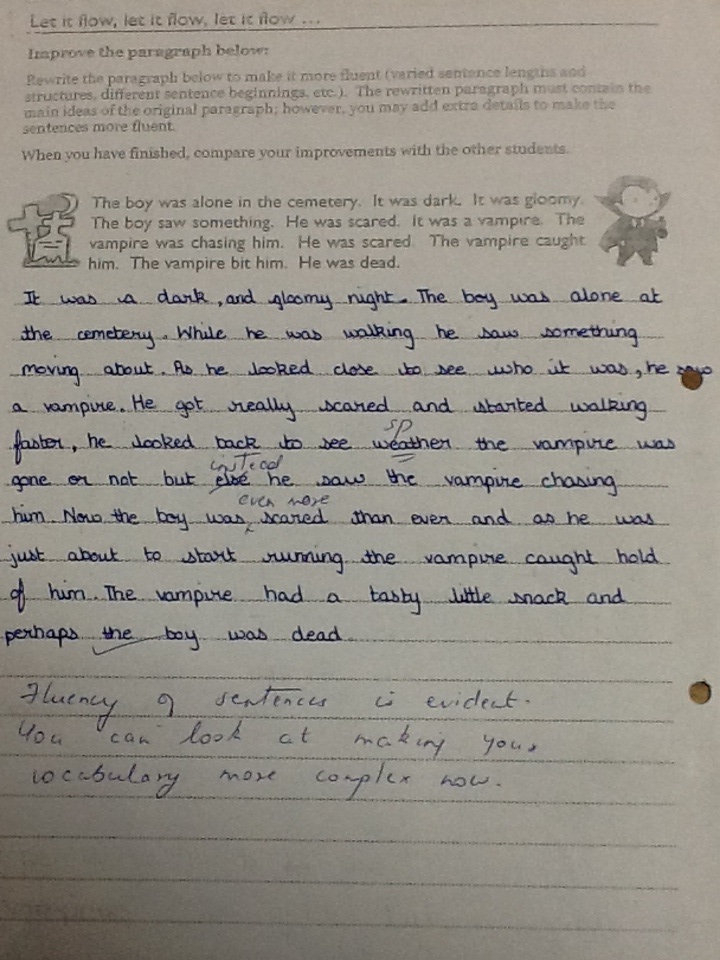 Let it flow, let it flow, let it flow ...
Improve the paragraph below:
Rewrite the paragraph below to make it more fluent (varied sentence lengths and
structures, different sentence beginnings, etc.). The rewritten paragraph must contain the
main ideas of the original paragraph; however, you may add extra details to make the
sentences more fluent.
When you have finished, compare your improvements with the other students.
The boy was alone in the cemetery. It was dark. It was gloomy.
The boy saw something. He was scared. It was a vampire. The
vampire was chasing him. He was scared. The vampire caught
him. The vampire bit him. He was dead.
It was a dark, and gloomy night. The boy was alone at
the cemetery. While he was walking he saw something
moving about. As he looked close to see who it was, he saw
a vampire. He got really scared and started walking
sp
faster, he looked back to see weather the vampire was
instead
gone or not but else he saw the vampire chasing
even more
him. Now the boy was scared than ever and as he was
just about to start running the vampire caught hold
of him. The vampire had a tasty little snack and
perhaps the boy was dead.
Fluency of sentences is evident.
You can look at making your
vocabulary more complex now.